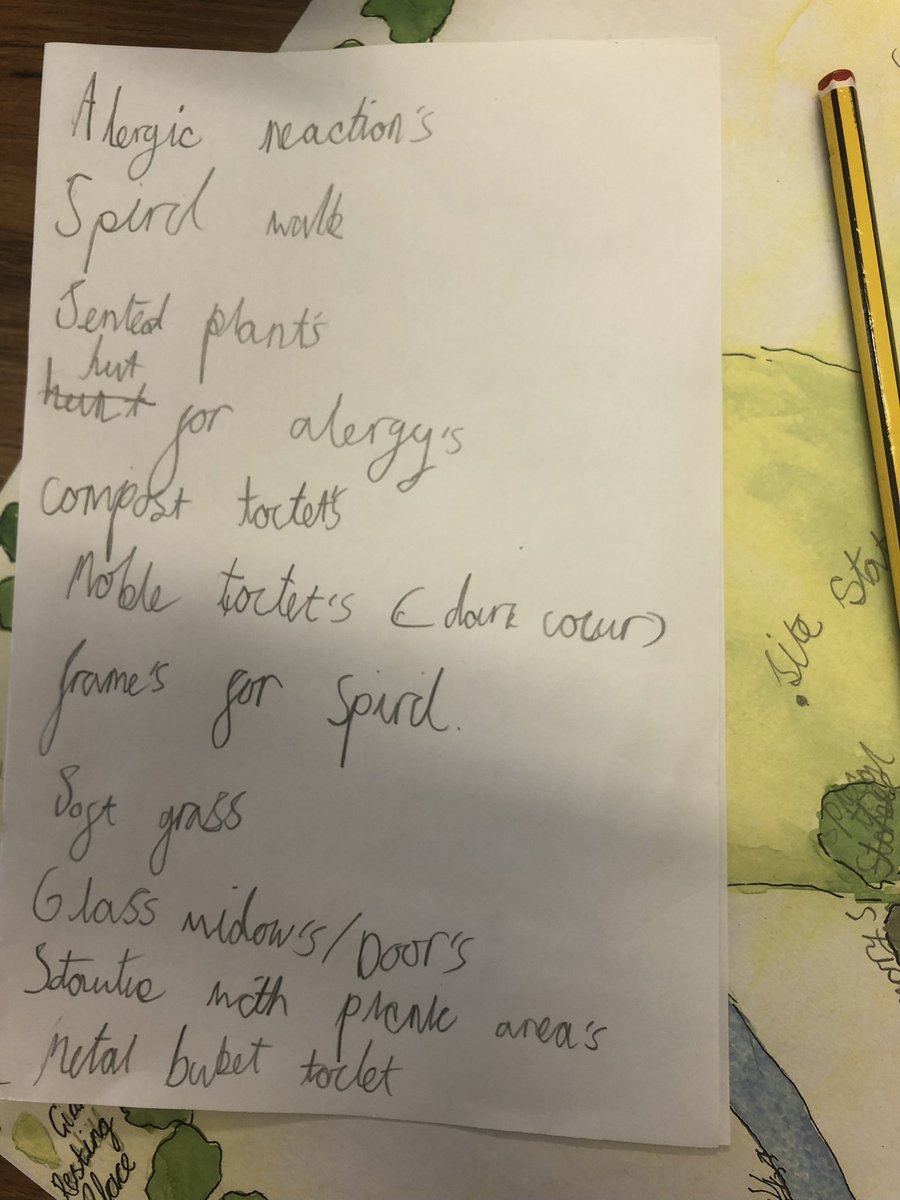 Alergic reaction's
Spirel walk
Sented plant's
hut
for alergy's
compost toctet's
Moble toctet's (dark cocur)
frame's for Spirel.
Soft grass
Glass widow's/Door's
Statue with picnic area's
Metal buket toclet
.Site Sto
Story
Resting
Place